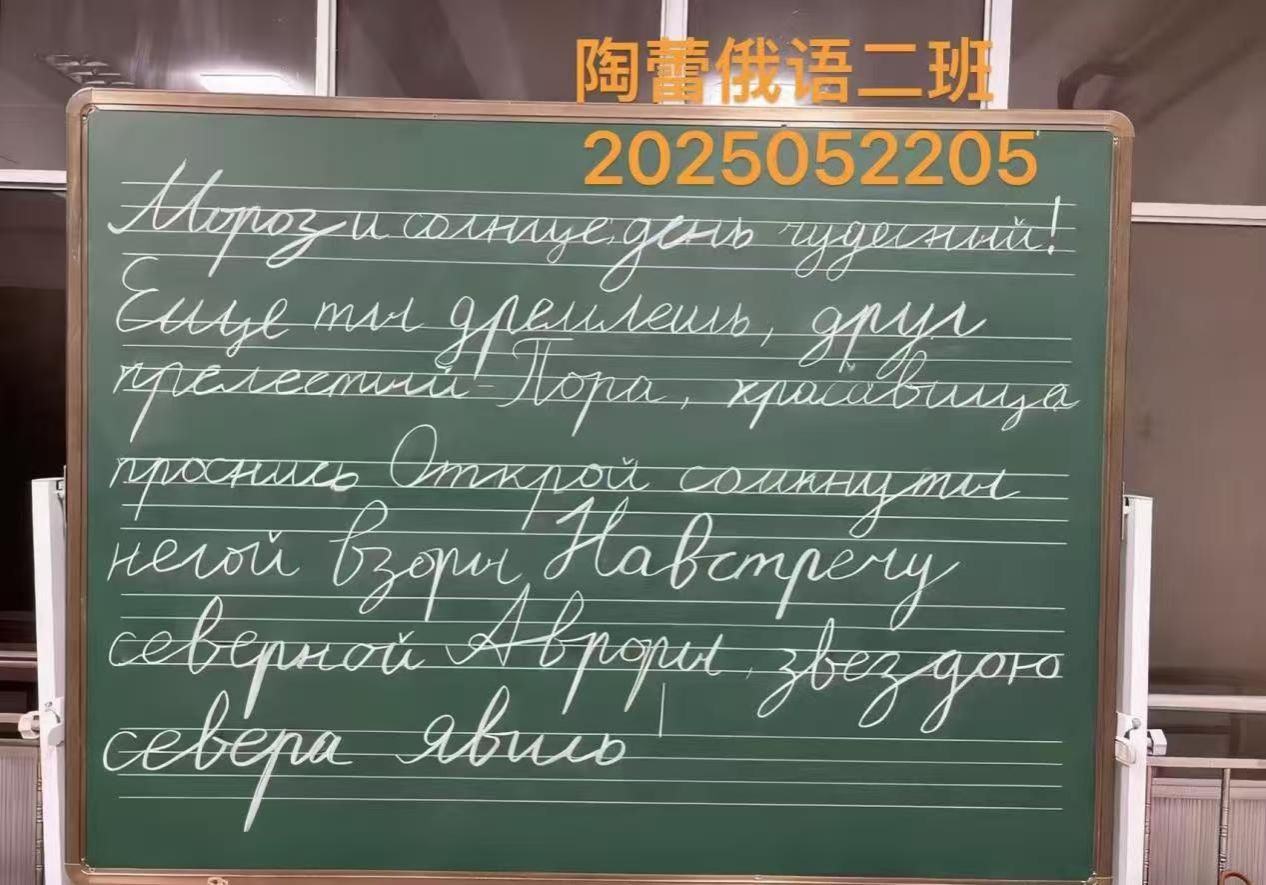 陶蕾俄语二班
2025052205
Мороз и солнце, день чудесный!
Еще ты дремлешь, друг
прелестный - Пора, красавица
проснись Открой сомкнуты
негой взоры Навстречу
северной Авроры, звездою
севера явись